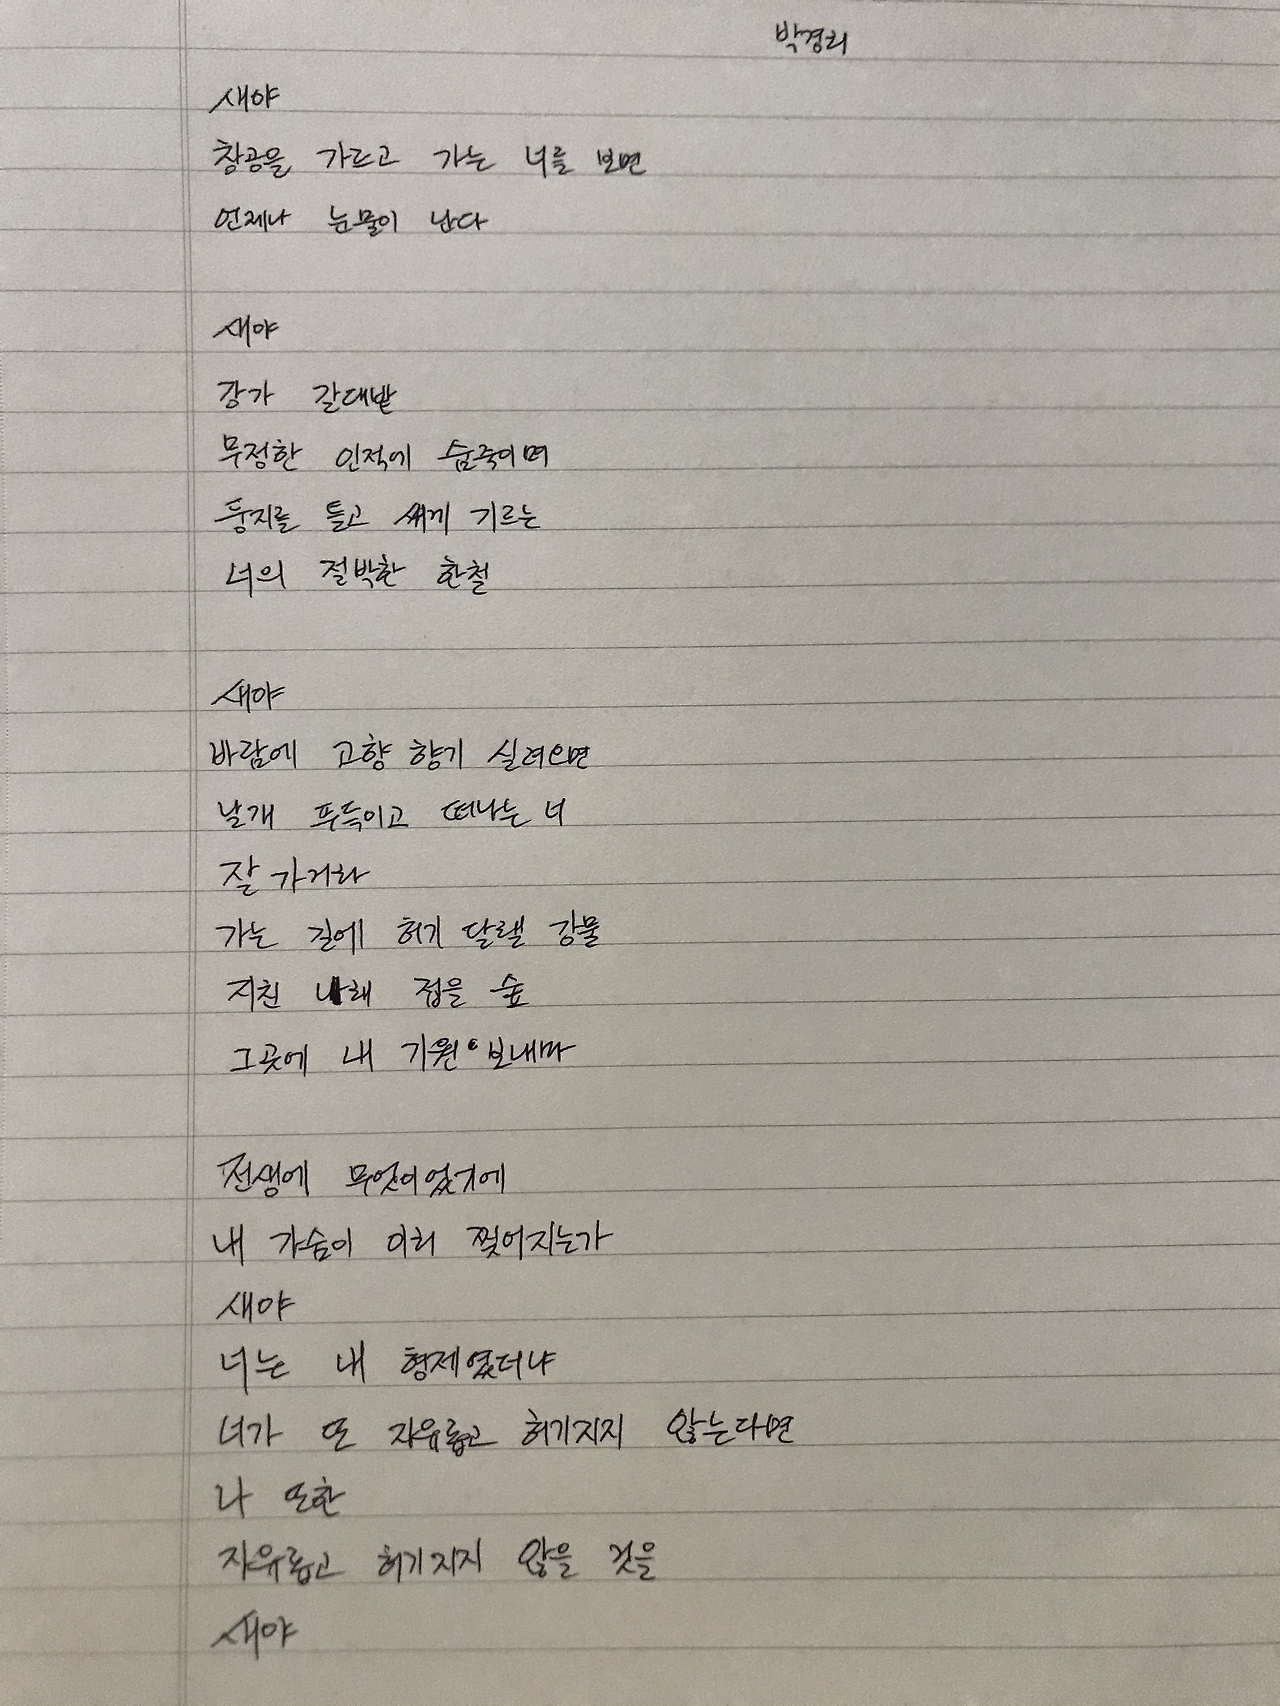 박경리
새야
창공을 가르고 가는 너를 보면
언제나 눈물이 난다
새야
강가 갈대밭
무정한 인적에 숨죽이며
둥지를 틀고 새끼 기르는
너의 절박한 한철
새야
바람에 고향 향기 실려오면
날개 푸득이고 떠나는 너
잘 가거라
가는 길에 허기 달랠 강물
지친 나래 접을 숲
그곳에 내 기원 보내마
전생에 무엇이었기에
내 가슴이 이리 찢어지는가
새야
너는 내 형제였더냐
너가 또 자유롭고 허기지지 않는다면
나 또한
자유롭고 허기지지 않을 것을
새야